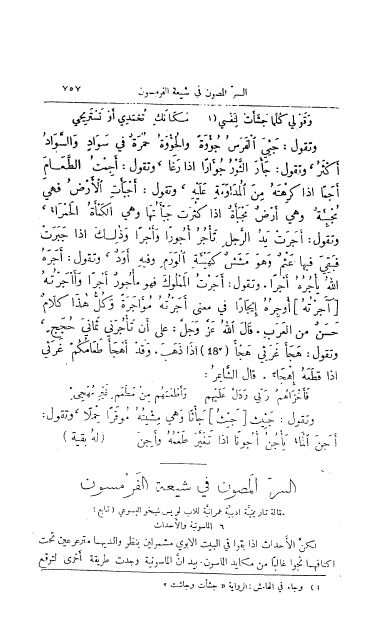 السرّ المصون في شيعة الفرمسون ٧٥٧
وَقَوْلي كُلَّمَا جَشَأَتْ لِنَفْسِي ١) مَكَانَكِ تُحْمَدِي أَوْ تَسْتَرِيحِي
وتقول: جَئِيَ الفَرَسُ جُؤْوَةً والْجُؤْوَةُ حُمْرَةٌ في سَوَادٍ وَالسَّوَادُ
أَكْثَرُ، وتقول: جَأَرَ الثَّوْرُ جُؤَارًا اذا رَغَا، وتقول: أَجِمْتُ الطَّعَامَ
أَجَمًا اذا كَرِهْتَهُ مِنَ الْمُدَاوَمَةِ عَلَيْهِ، وتقول: أَجْبَأَتِ الأَرْضُ فهي
مُجْبِئَةٌ وهي أَرْضٌ مَجْبَأَةٌ اذا كثرت جَبْأَتُها وهي الكَمْأَةُ الحَمْرَاءُ،
وتقول: أَجَرَتْ يَدُ الرَّجلِ تَأْجُرُ أُجُورًا وَأَجْرًا وَذٰلِكَ اذا جَبَرَتْ
فَبَقِيَ فيها عَثْمٌ وَهُوَ مَشَشٌ كَهَيْئَةِ الوَرَمِ وفيهِ أَوَدٌ، وتقول: أَجَرَهُ
اللهُ يَأْجُرُهُ أَجْرًا. وتقول: أَجَرْتُ المَمْلُوكَ فهو مأْجُورٌ أَجْرًا وَآجَرْتُهُ
[آجَرْتُهُ] أُوجِرُهُ إِيجَارًا في معنى أَجَرْتُهُ مُؤَاجَرَةً وَكُلُّ هٰذا كلامٌ
حَسَنٌ من العَرَبِ. قال اللهُ عَزَّ وَجَلَّ: عَلَى أن تَأْجُرَنِي ثَمَانِيَ حِجَجٍ.
وتقول: هَجَأَ غَرَثِي هَجْأً (18ʳ) اذا ذَهَبَ. وَقَدْ أَهْجَأَ طَعَامُكُمْ غَرَثِي
اذا قَطَعَهُ إِهْجَاءً. قال الشَّاعِرُ:
فَأَخْزَاهُمُ رَبِّي وَدَلَّ عَلَيْهِمِ وَأَطْعَمَهُمْ مِنْ مَطْعَمٍ غَيْرِ مُهْجِي
وتقول: جَئِيْتُ [جَئِثَ] جَأَثًا وَهي مِشْيَتُهُ مُوقَرًا حِمْلًا، وتقول:
أَجَنَ الْمَاءُ يَأْجُنُ أُجُونًا اذا تَغَيَّرَ طَعْمُهُ وَأَجِنَ (لهُ بقية)
السرّ المصون في شيعة الفرمسون
مقالة تاريخية ادبية عمرانية للاب لويس شيخو اليسوعي (تابع)
٦ الماسونية والأحداث
لكنَّ الأحداث اذا بقوا في البيت الابوي مشمولين بنظر والديهما مترعرعين تحت
اكنافهما نجوا غالبًا من مكايد الماسون. بيد انَّ الماسونية وجدت طريقة أُخرى لتوقع
١) وجاء في الهامش: الرواية « جَشَأَت وجاشت »